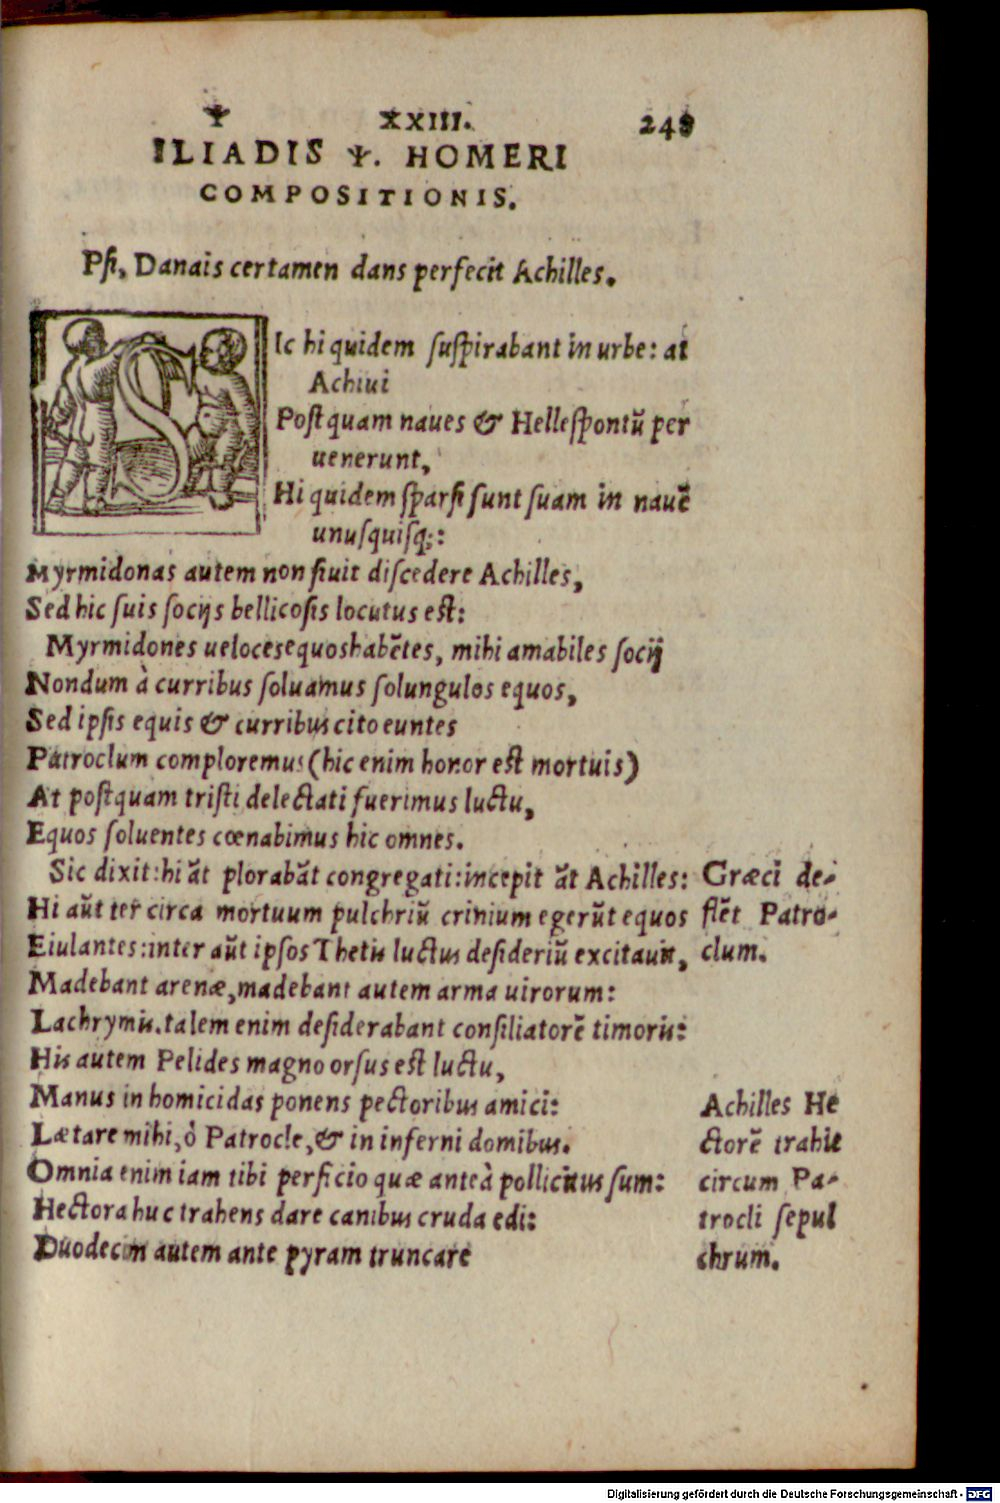 Ψ XXIII. 249
ILIADIS Ψ. HOMERI
COMPOSITIONIS.
Pſi, Danais certamen dans perfecit Achilles.
SIc hi quidem ſuſpirabant in urbe: at
Achiui
Poſtquam naues & Helleſpontũ per
uenerunt,
Hi quidem ſparſi ſunt ſuam in nauẽ
unuſquiſq;:
Myrmidonas autem non ſiuit diſcedere Achilles,
Sed hic ſuis ſocijs bellicoſis locutus eſt:
Myrmidones ueloces equos habẽtes, mihi amabiles ſocij
Nondum à curribus ſoluamus ſolungulos equos,
Sed ipſis equis & curribus cito euntes
Patroclum comploremus (hic enim honor eſt mortuis)
At poſtquam triſti delectati fuerimus luctu,
Equos ſoluentes cœnabimus hic omnes.
Sic dixit: hi ãt plorabãt congregati: incepit ãt Achilles:
Hi aũt ter circa mortuum pulchriũ crinium egerũt equos
Eiulantes: inter aũt ipſos Thetis luctus deſideriũ excitauit,
Madebant arenæ, madebant autem arma uirorum:
Lachrymis. talem enim deſiderabant conſiliatorẽ timoris:
His autem Pelides magno orſus eſt luctu,
Manus in homicidas ponens pectoribus amici:
Lætare mihi, ò Patrocle, & in inferni domibus.
Omnia enim iam tibi perficio quæ anteà pollicitus ſum:
Hectora huc trahens dare canibus cruda edi:
Duodecim autem ante pyram truncare
Græci de-
flẽt Patro-
clum.
Achilles He
ctorẽ trahit
circum Pa-
trocli ſepul
chrum.
Digitalisierung gefördert durch die Deutsche Forschungsgemeinschaft - DFG